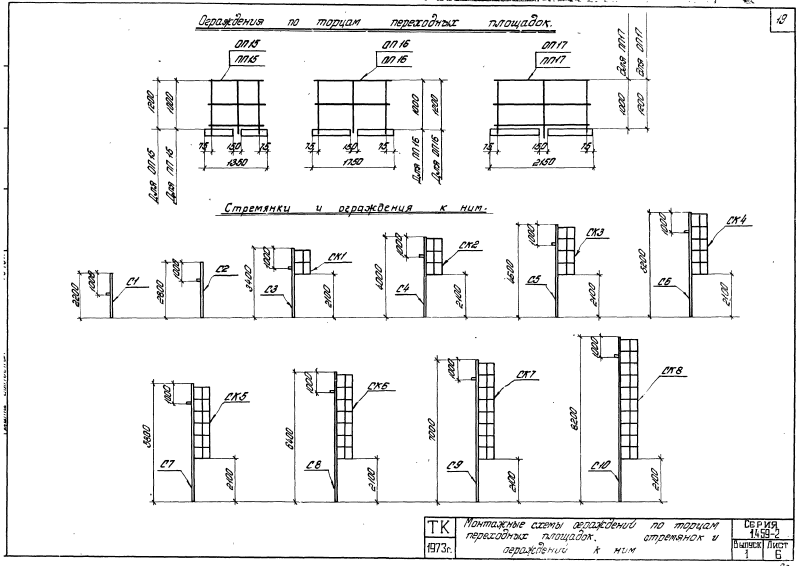 19
Ограждения по торцам переходных площадок.
ОП15
ПП15
ОП16
ПП16
ОП17
ПП17
1200
1000
1000
1200
1000
1200
Для ОП15
Для ПП15
Для ПП16
Для ОП16
Для ПП17
Для ОП17
75 150 75
1350
75 150 75
1750
75 150 75
2150
Стремянки и ограждения к ним.
2200
1000
С1
2800
1000
С2
3400
1000
СК1
С3
2100
4000
1000
СК2
С4
2100
4600
1000
СК3
С5
2100
5200
1000
СК4
С6
2100
5800
1000
СК5
С7
2100
6400
1000
СК6
С8
2100
7000
1000
СК7
С9
2100
8200
1000
СК8
С10
2100
ТК
1973г.
Монтажные схемы ограждений по торцам
переходных площадок. стремянок и
ограждений к ним
Серия
1.459-2
Выпуск
1
Лист
6